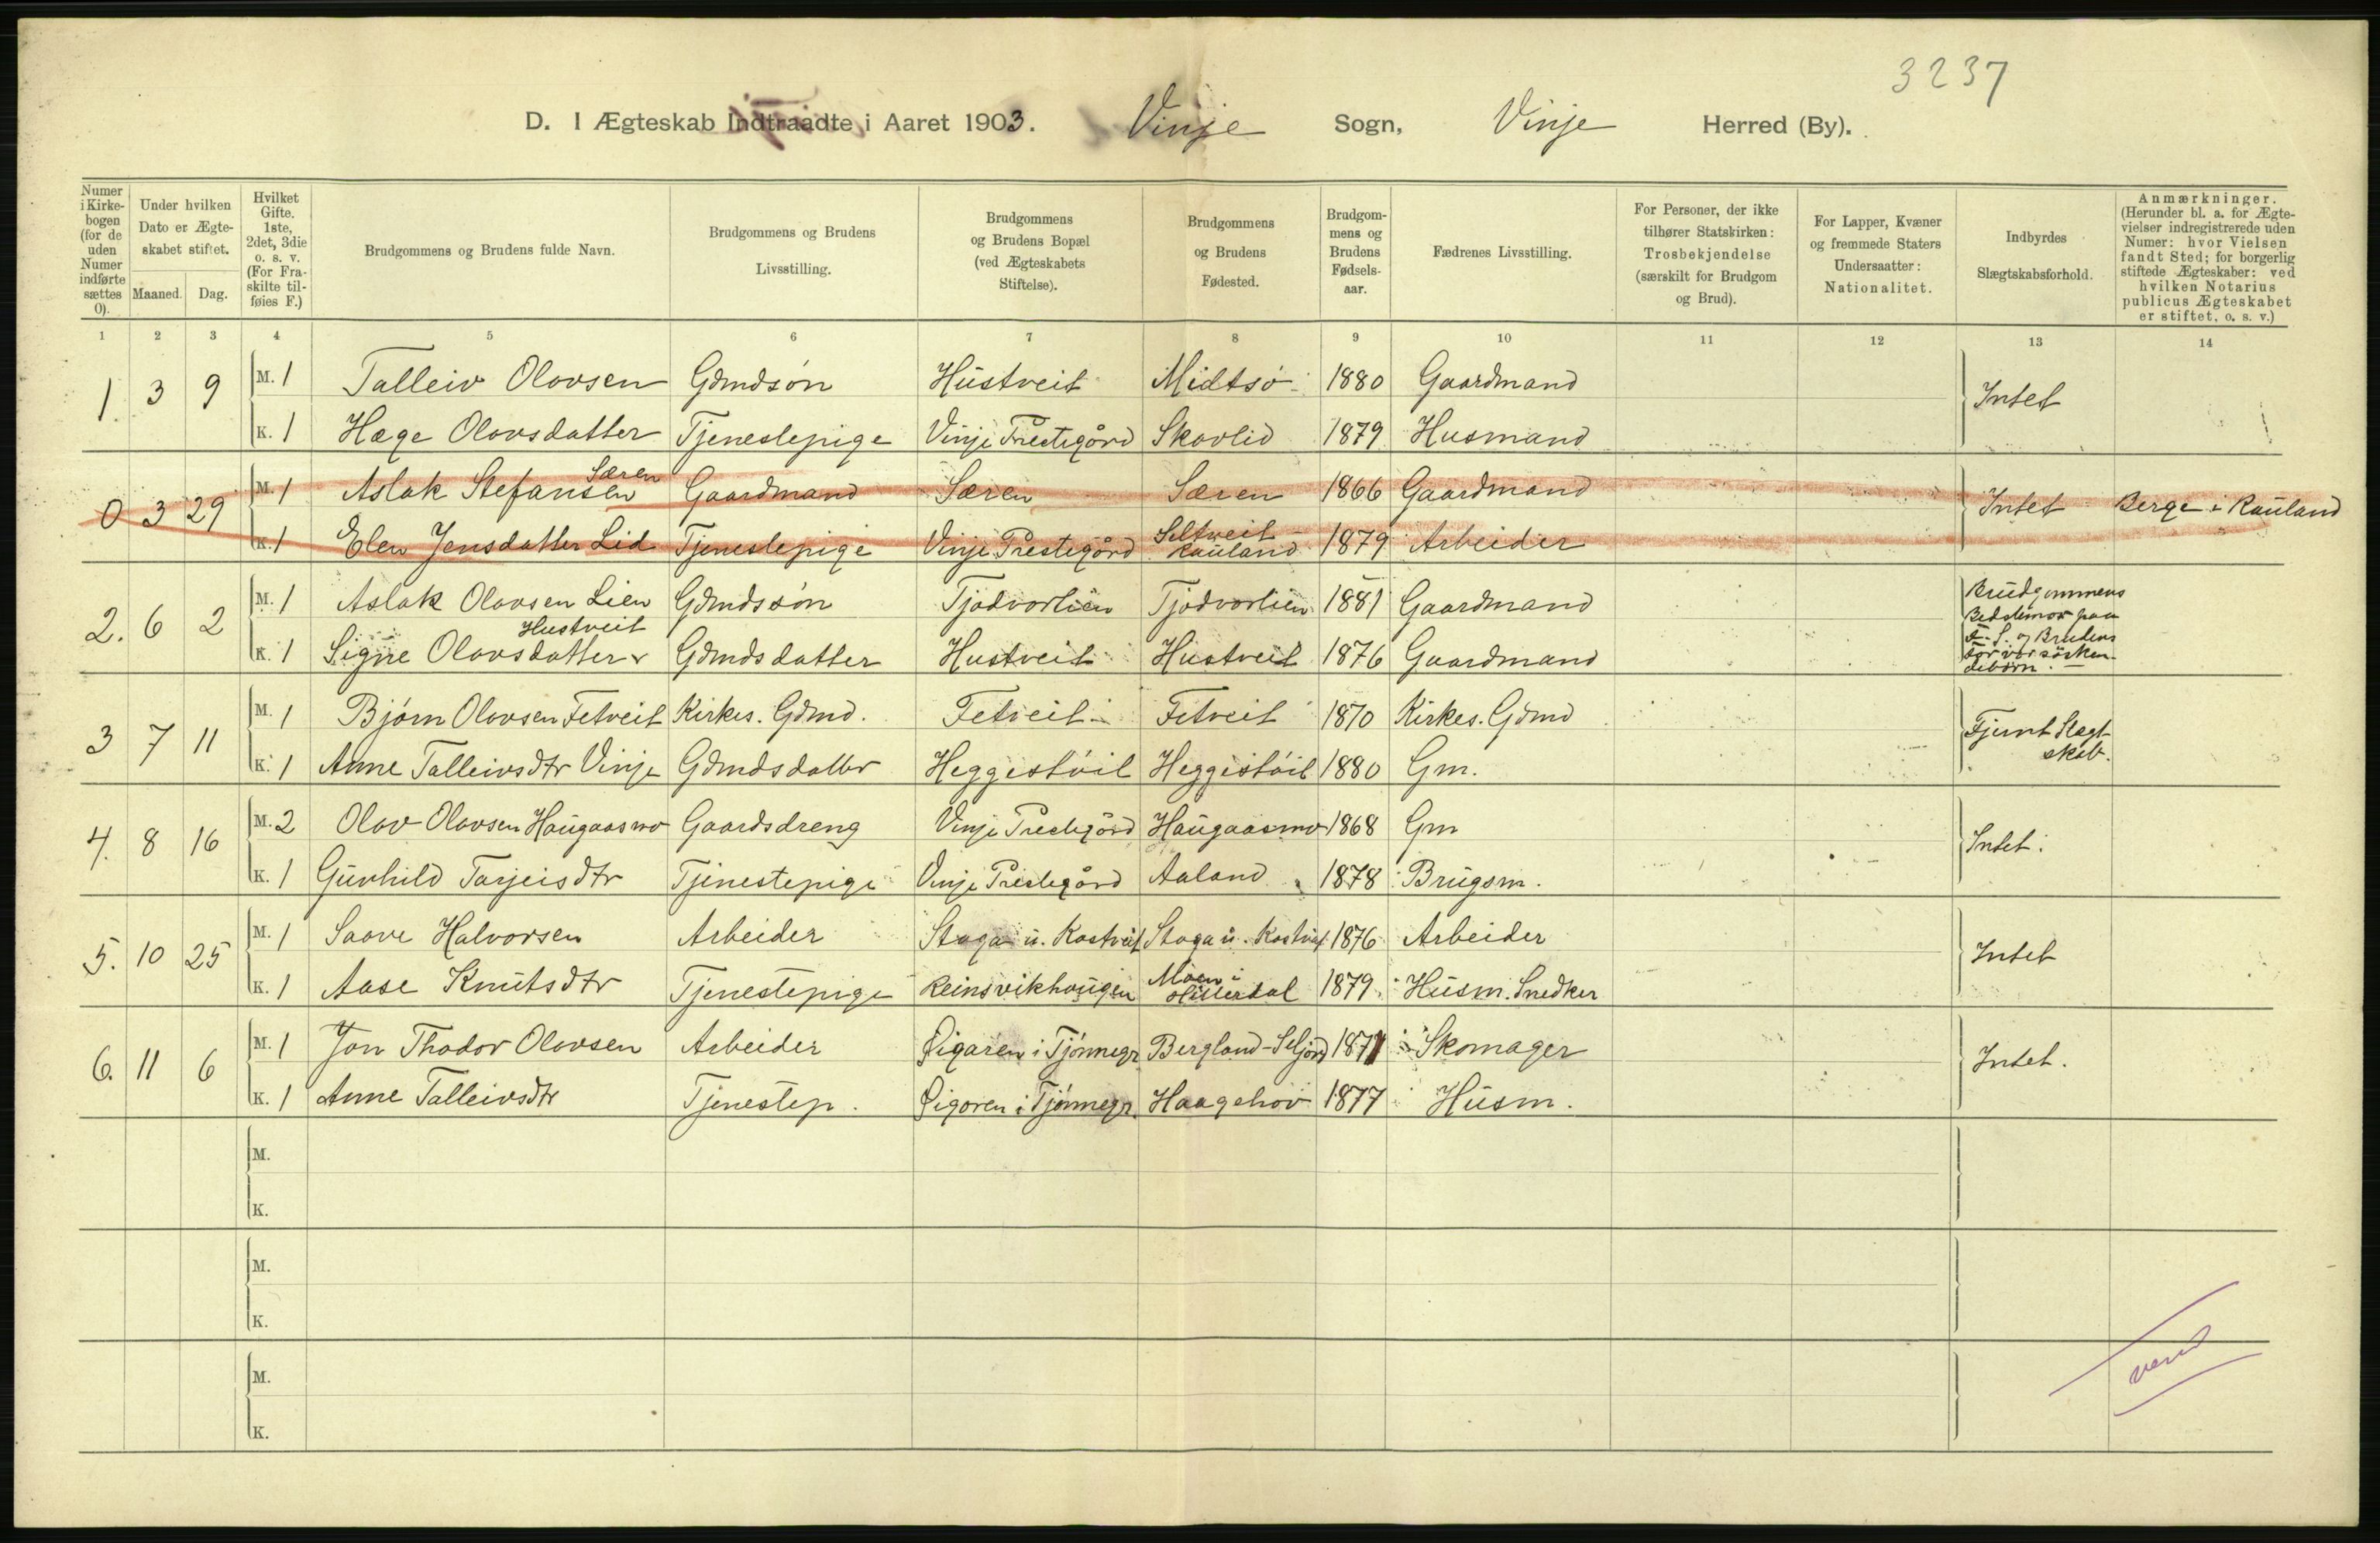 3237
D. I Ægteskab Indtraadte i Aaret 1903. Vinje Sogn, Vinje Herred (By).
Numer i Kirkebogen (for de uden Numer indførte sættes 0).
Under hvilken Dato er Ægteskabet stiftet.
Maaned. Dag.
Hvilket Gifte. 1ste, 2det, 3die o. s. v. (For Fraskilte tilføies F.)
Brudgommens og Brudens fulde Navn.
Brudgommens og Brudens Livsstilling.
Brudgommens og Brudens Bopæl (ved Ægteskabets Stiftelse).
Brudgommens og Brudens Fødested.
Brudgommens og Brudens Fødselsaar.
Fædrenes Livsstilling.
For Personer, der ikke tilhører Statskirken: Trosbekjendelse (særskilt for Brudgom og Brud).
For Lapper, Kvæner og fremmede Staters Undersaatter: Nationalitet.
Indbyrdes Slægtskabsforhold.
Anmærkninger. (Herunder bl. a. for Ægtevielser indregistrerede uden Numer: hvor Vielsen fandt Sted; for borgerlig stiftede Ægteskaber: ved hvilken Notarius publicus Ægteskabet er stiftet, o. s. v.)
1 2 3 4 5 6 7 8 9 10 11 12 13 14
1. 3 9 M. 1 Talleiv Olovsen Gdmdsön Hustveit Midtsö 1880 Gaardmand Intet
K. 1 Hæge Olovsdatter Tjenestepige Vinje Prestegård Skovlid 1879 Husmand
0 3 29 M. 1 Aslak Stefansen Særen Gaardmand Særen Særen 1866 Gaardmand Intet Berge i Rauland
K. 1 Elen Jensdatter Lid Tjenestepige Vinje Prestegård Seltveit Rauland 1879 Arbeider
2. 6 2 M. 1 Aslak Olovsen Lien Gdmdssön Tjodvorlien Tjodvorlien 1881 Gaardmand Brudgommens Bedstemor paa F. S. og Brudens Far var sösken-debörn.
K. 1 Signe Olovsdatter Hustveit Gdmdsdatter Hustveit Hustveit 1876 Gaardmand
3 7 11 M. 1 Bjørn Olovsen Fetveit Kirkes. Gdmd. Fetveit Fetveit 1870 Kirkes. Gdmd Fjernt Slægt-skab.
K. 1 Anne Talleivsdtr Vinje Gdmdsdatter Heggestöil Heggestöil 1880 Gm.
4. 8 16 M. 2 Olov Olovsen Haugaasmo Gaardsdreng Vinje Prestegård Haugaasmo 1868 Gm Intet.
K. 1 Gunhild Tarjeisdtr Tjenestepige Vinje Prestegård Aaland 1878 Brugsm.
5. 10 25 M. 1 Saave Halvorsen Arbeider Stoga u. Kostveit Stoga u. Kostveit 1876 Arbeider Intet
K. 1 Aase Knutsdtr Tjenestepige Reinsvikhaugen Moen i Hitterdal 1879. Husm. Snedker
6. 11 6 M. 1 Jon Thodor Olovsen Arbeider Øigaren i Tjönnegr. Bergland-Seljord 1871 Skomager Intet.
K. 1 Anne Talleivsdtr Tjenestep. Øigoren i Tjönnegr. Haagehov 1877 Husm.
M.
K.
M.
K.
M.
K.
vend